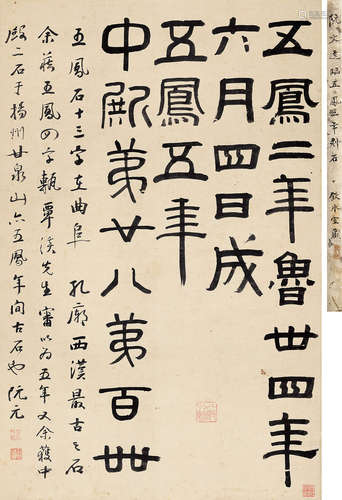 五鳳二年魯卅四年
六月四日成
五鳳五年
中殿弟廿八弟百卌
五鳳石十三字在曲阜 孔廟西漢最古之石
余藏五鳳四字甎覃溪先生審以為五年又余獲中
殿二石于揚州甘泉山亦五鳳年間古石也阮元
阮文達臨五鳳 年刻石 飲冰室藏